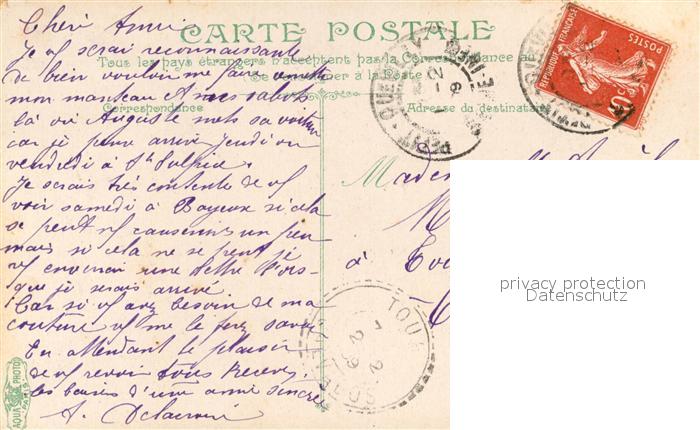 CARTE POSTALE
Tous les pays étrangers n'acceptent pas la Correspondance au
à la Poste
Correspondance
Adresse du destinataire
Chère Amie
Je vs serai reconnaissante
de bien vouloir me faire
mon manteau A mes sabots
là où Auguste mets sa voiture
car je pense arrivé jeudi ou
vendredi à St Sulpice
Je serais très contente de vs
voir samedi à Bayeux si cela
se peut ns causerons un peu
mais si cela ne se peut je
vs enverrai une lettre lors-
que je serais arrivé
Car si vs avez besoin de ma
couture vs me le ferez savoir
En attendant le plaisir
de vs revoir tous recevez
les baisers d'une amie sincère
A.
à
POSTES
REPUBLIQUE FRANÇAISE
AQUA PHOTO
PARIS
privacy protection
Datenschutz